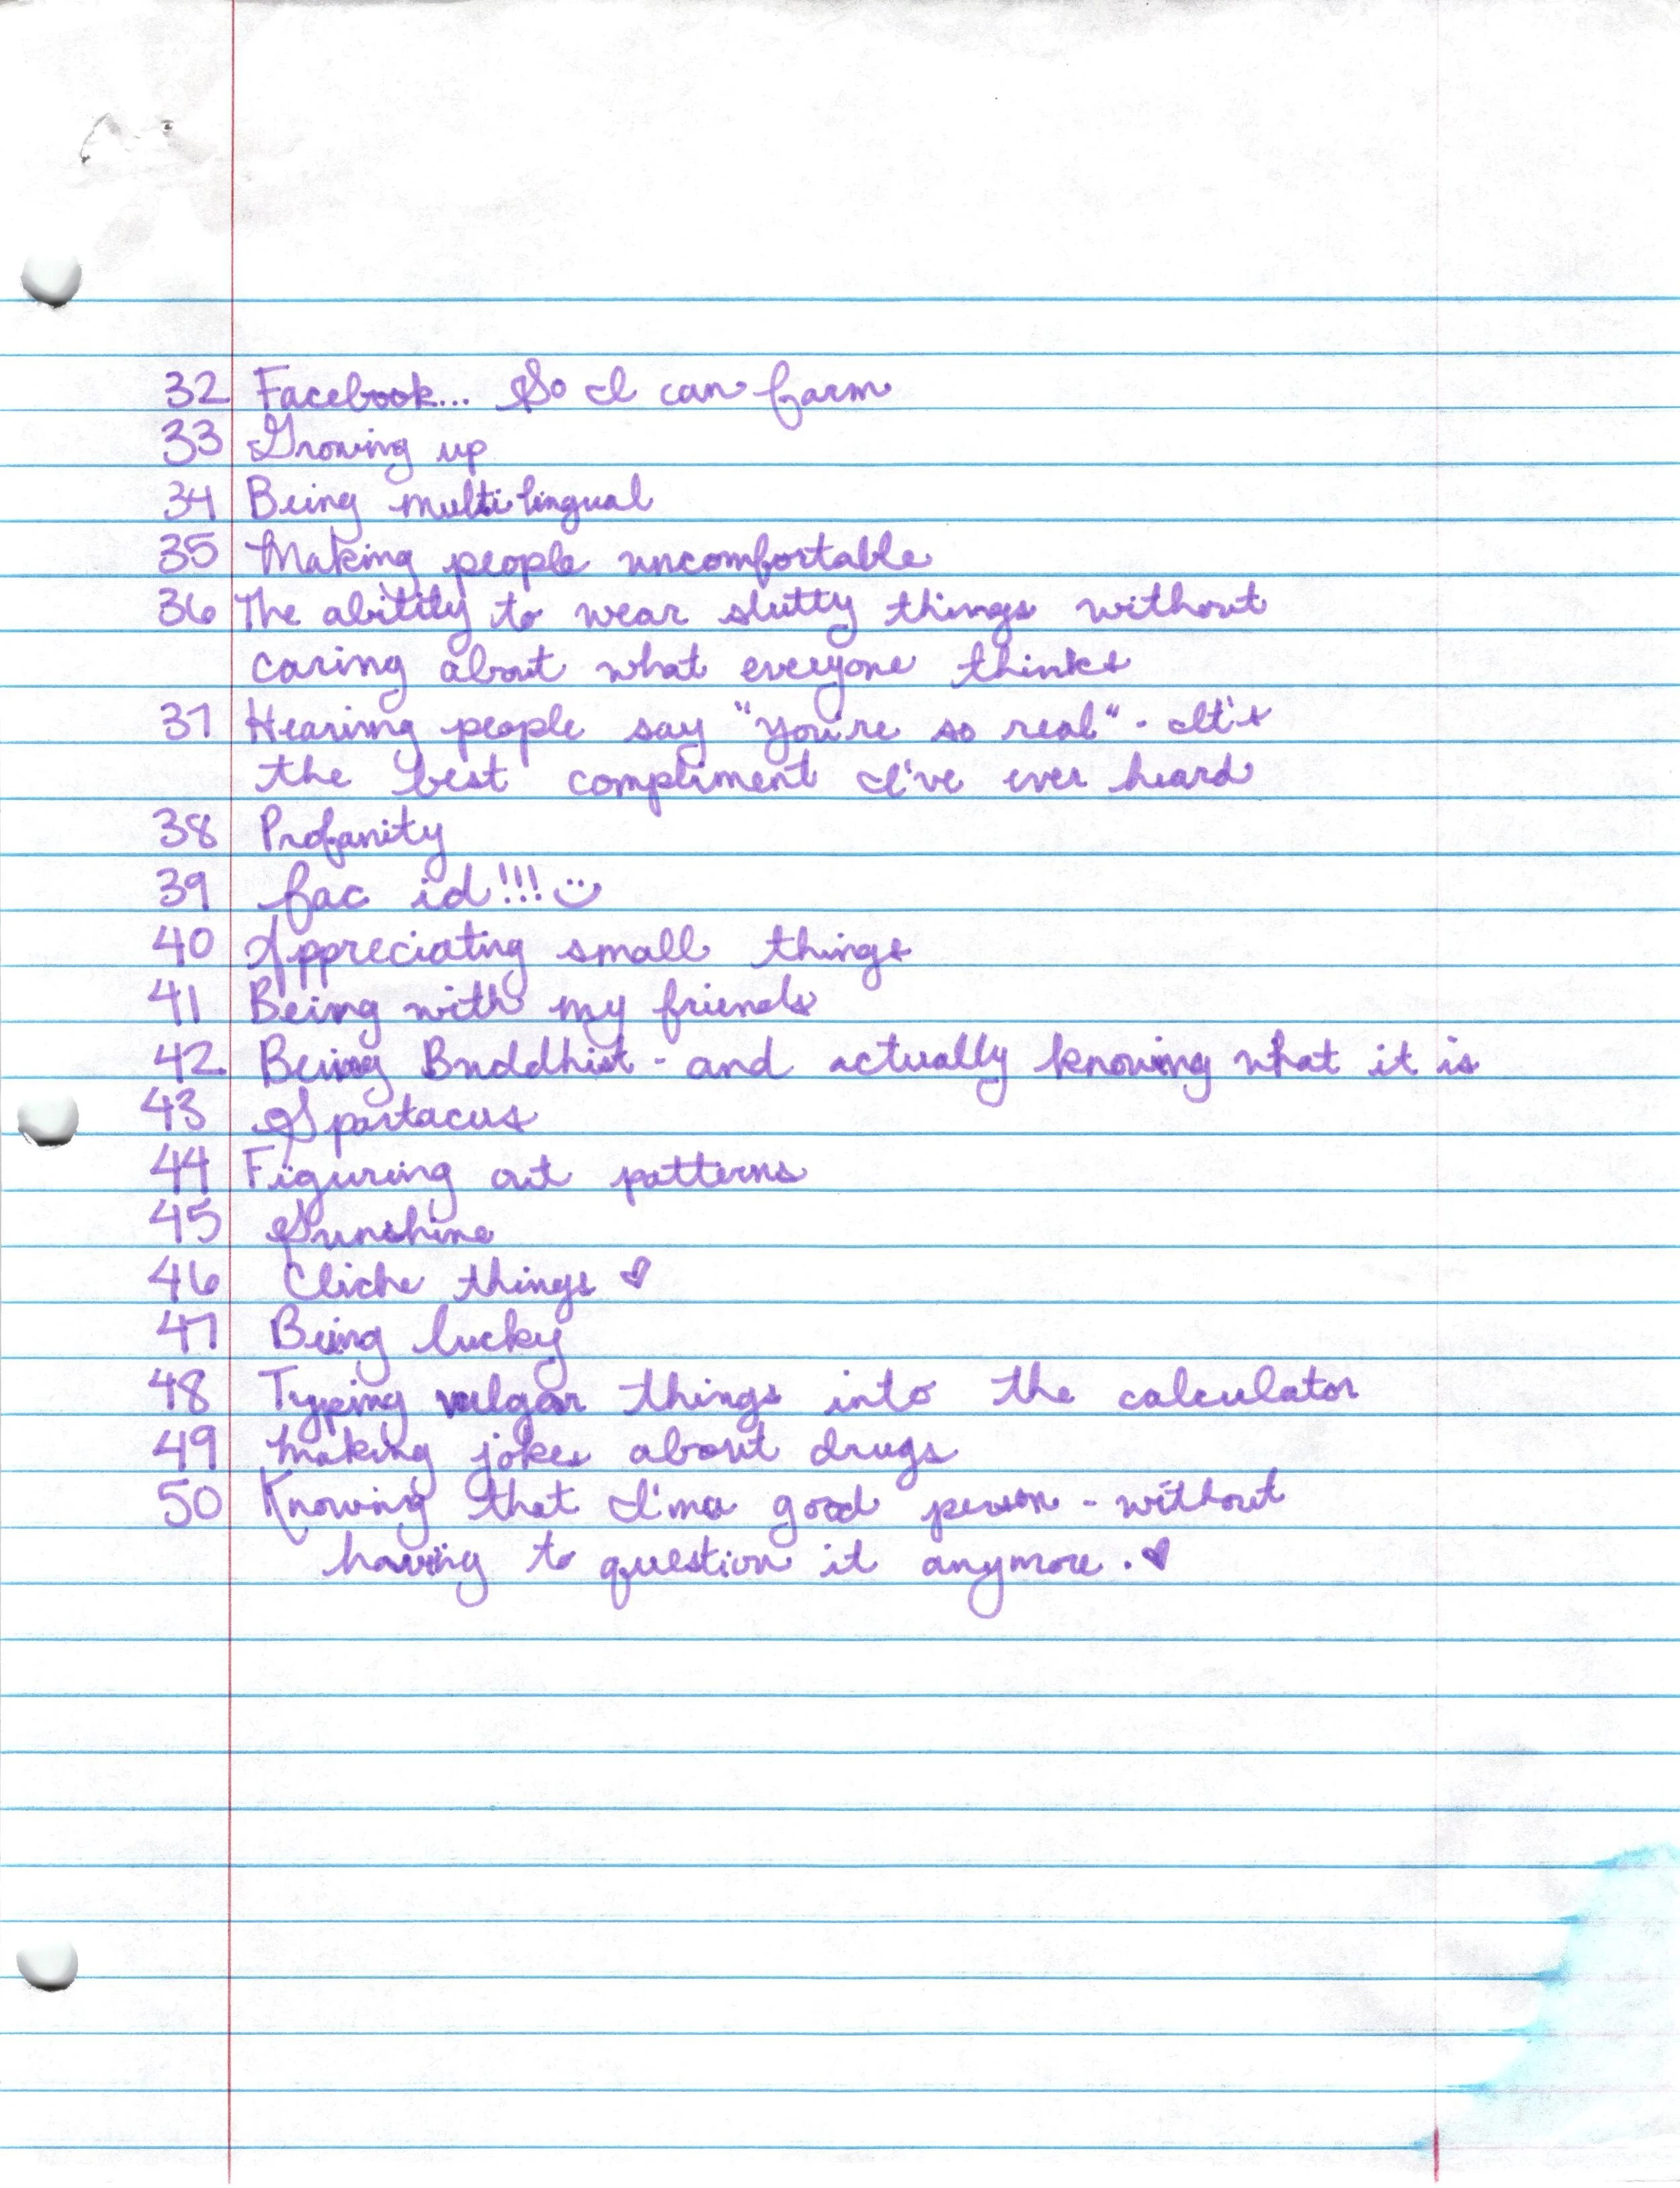 32 Facebook... So I can farm
33 Growing up
34 Being multilingual
35 Making people uncomfortable
36 The ability to wear slutty things without
caring about what everyone thinks
37 Hearing people say "you're so real" - It's
the best compliment I've ever heard
38 Profanity
39 fac id!!! :)
40 Appreciating small things
41 Being with my friends
42 Being Buddhist - and actually knowing what it is
43 Spartacus
44 Figuring out patterns
45 Sunshine
46 Cliche things ♥
47 Being lucky
48 Typing vulgar things into the calculator
49 Making jokes about drugs
50 Knowing that I'm a good person - without
having to question it anymore. ♥